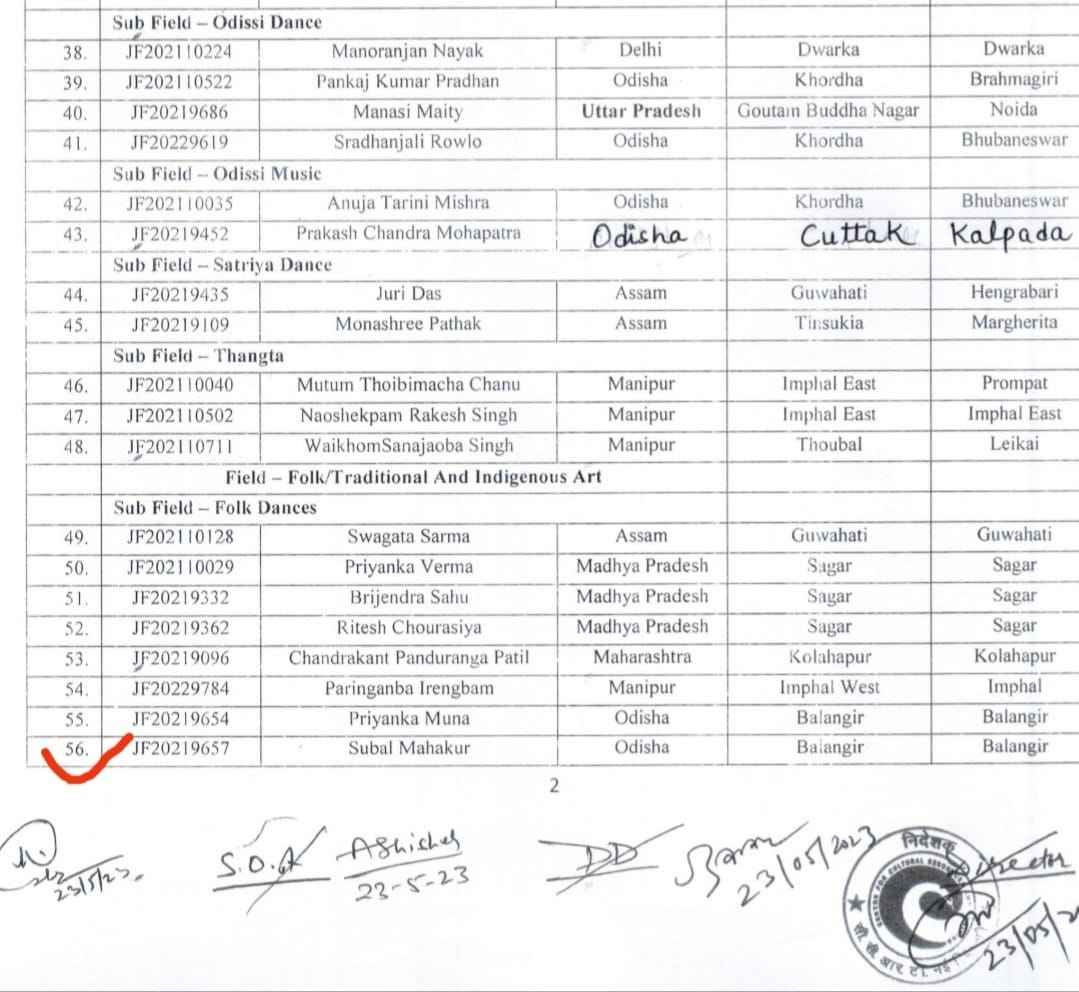 Sub Field – Odissi Dance
38. JF202110224 Manoranjan Nayak Delhi Dwarka Dwarka
39. JF202110522 Pankaj Kumar Pradhan Odisha Khordha Brahmagiri
40. JF20219686 Manasi Maity Uttar Pradesh Goutam Buddha Nagar Noida
41. JF20229619 Sradhanjali Rowlo Odisha Khordha Bhubaneswar
Sub Field – Odissi Music
42. JF202110035 Anuja Tarini Mishra Odisha Khordha Bhubaneswar
43. JF20219452 Prakash Chandra Mohapatra Odisha Cuttak Kalpada
Sub Field – Satriya Dance
44. JF20219435 Juri Das Assam Guwahati Hengrabari
45. JF20219109 Monashree Pathak Assam Tinsukia Margherita
Sub Field – Thangta
46. JF202110040 Mutum Thoibimacha Chanu Manipur Imphal East Prompat
47. JF202110502 Naoshekpam Rakesh Singh Manipur Imphal East Imphal East
48. JF202110711 WaikhomSanajaoba Singh Manipur Thoubal Leikai
Field – Folk/Traditional And Indigenous Art
Sub Field – Folk Dances
49. JF202110128 Swagata Sarma Assam Guwahati Guwahati
50. JF202110029 Priyanka Verma Madhya Pradesh Sagar Sagar
51. JF20219332 Brijendra Sahu Madhya Pradesh Sagar Sagar
52. JF20219362 Ritesh Chourasiya Madhya Pradesh Sagar Sagar
53. JF20219096 Chandrakant Panduranga Patil Maharashtra Kolahapur Kolahapur
54. JF20229784 Paringanba Irengbam Manipur Imphal West Imphal
55. JF20219654 Priyanka Muna Odisha Balangir Balangir
56. JF20219657 Subal Mahakur Odisha Balangir Balangir
2
23/5/23. S.O. Abhishek DD 23/05/2023 निदेशक Director
23-5-23 23/05/2